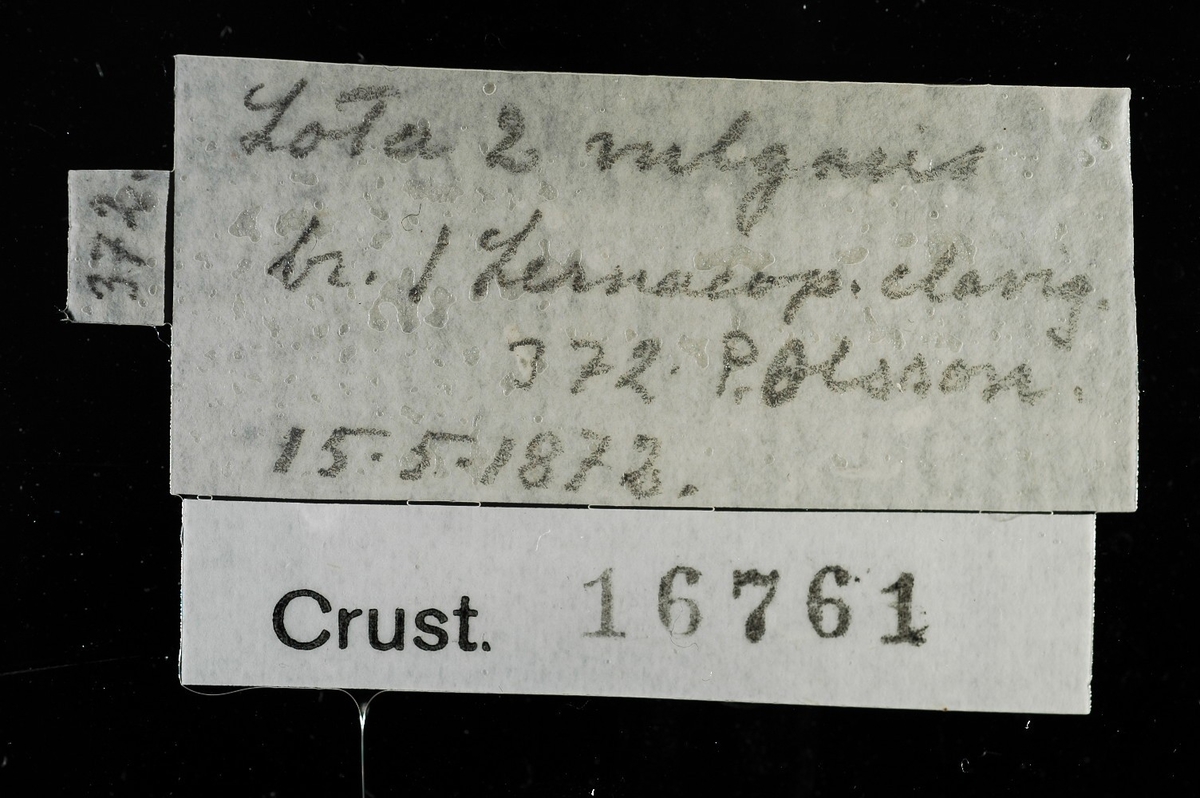 372.
Lota 2 vulgaris
br. / Lernaeop. clavig.
372. P. Olsson.
15.5.1872.
Crust. 16761